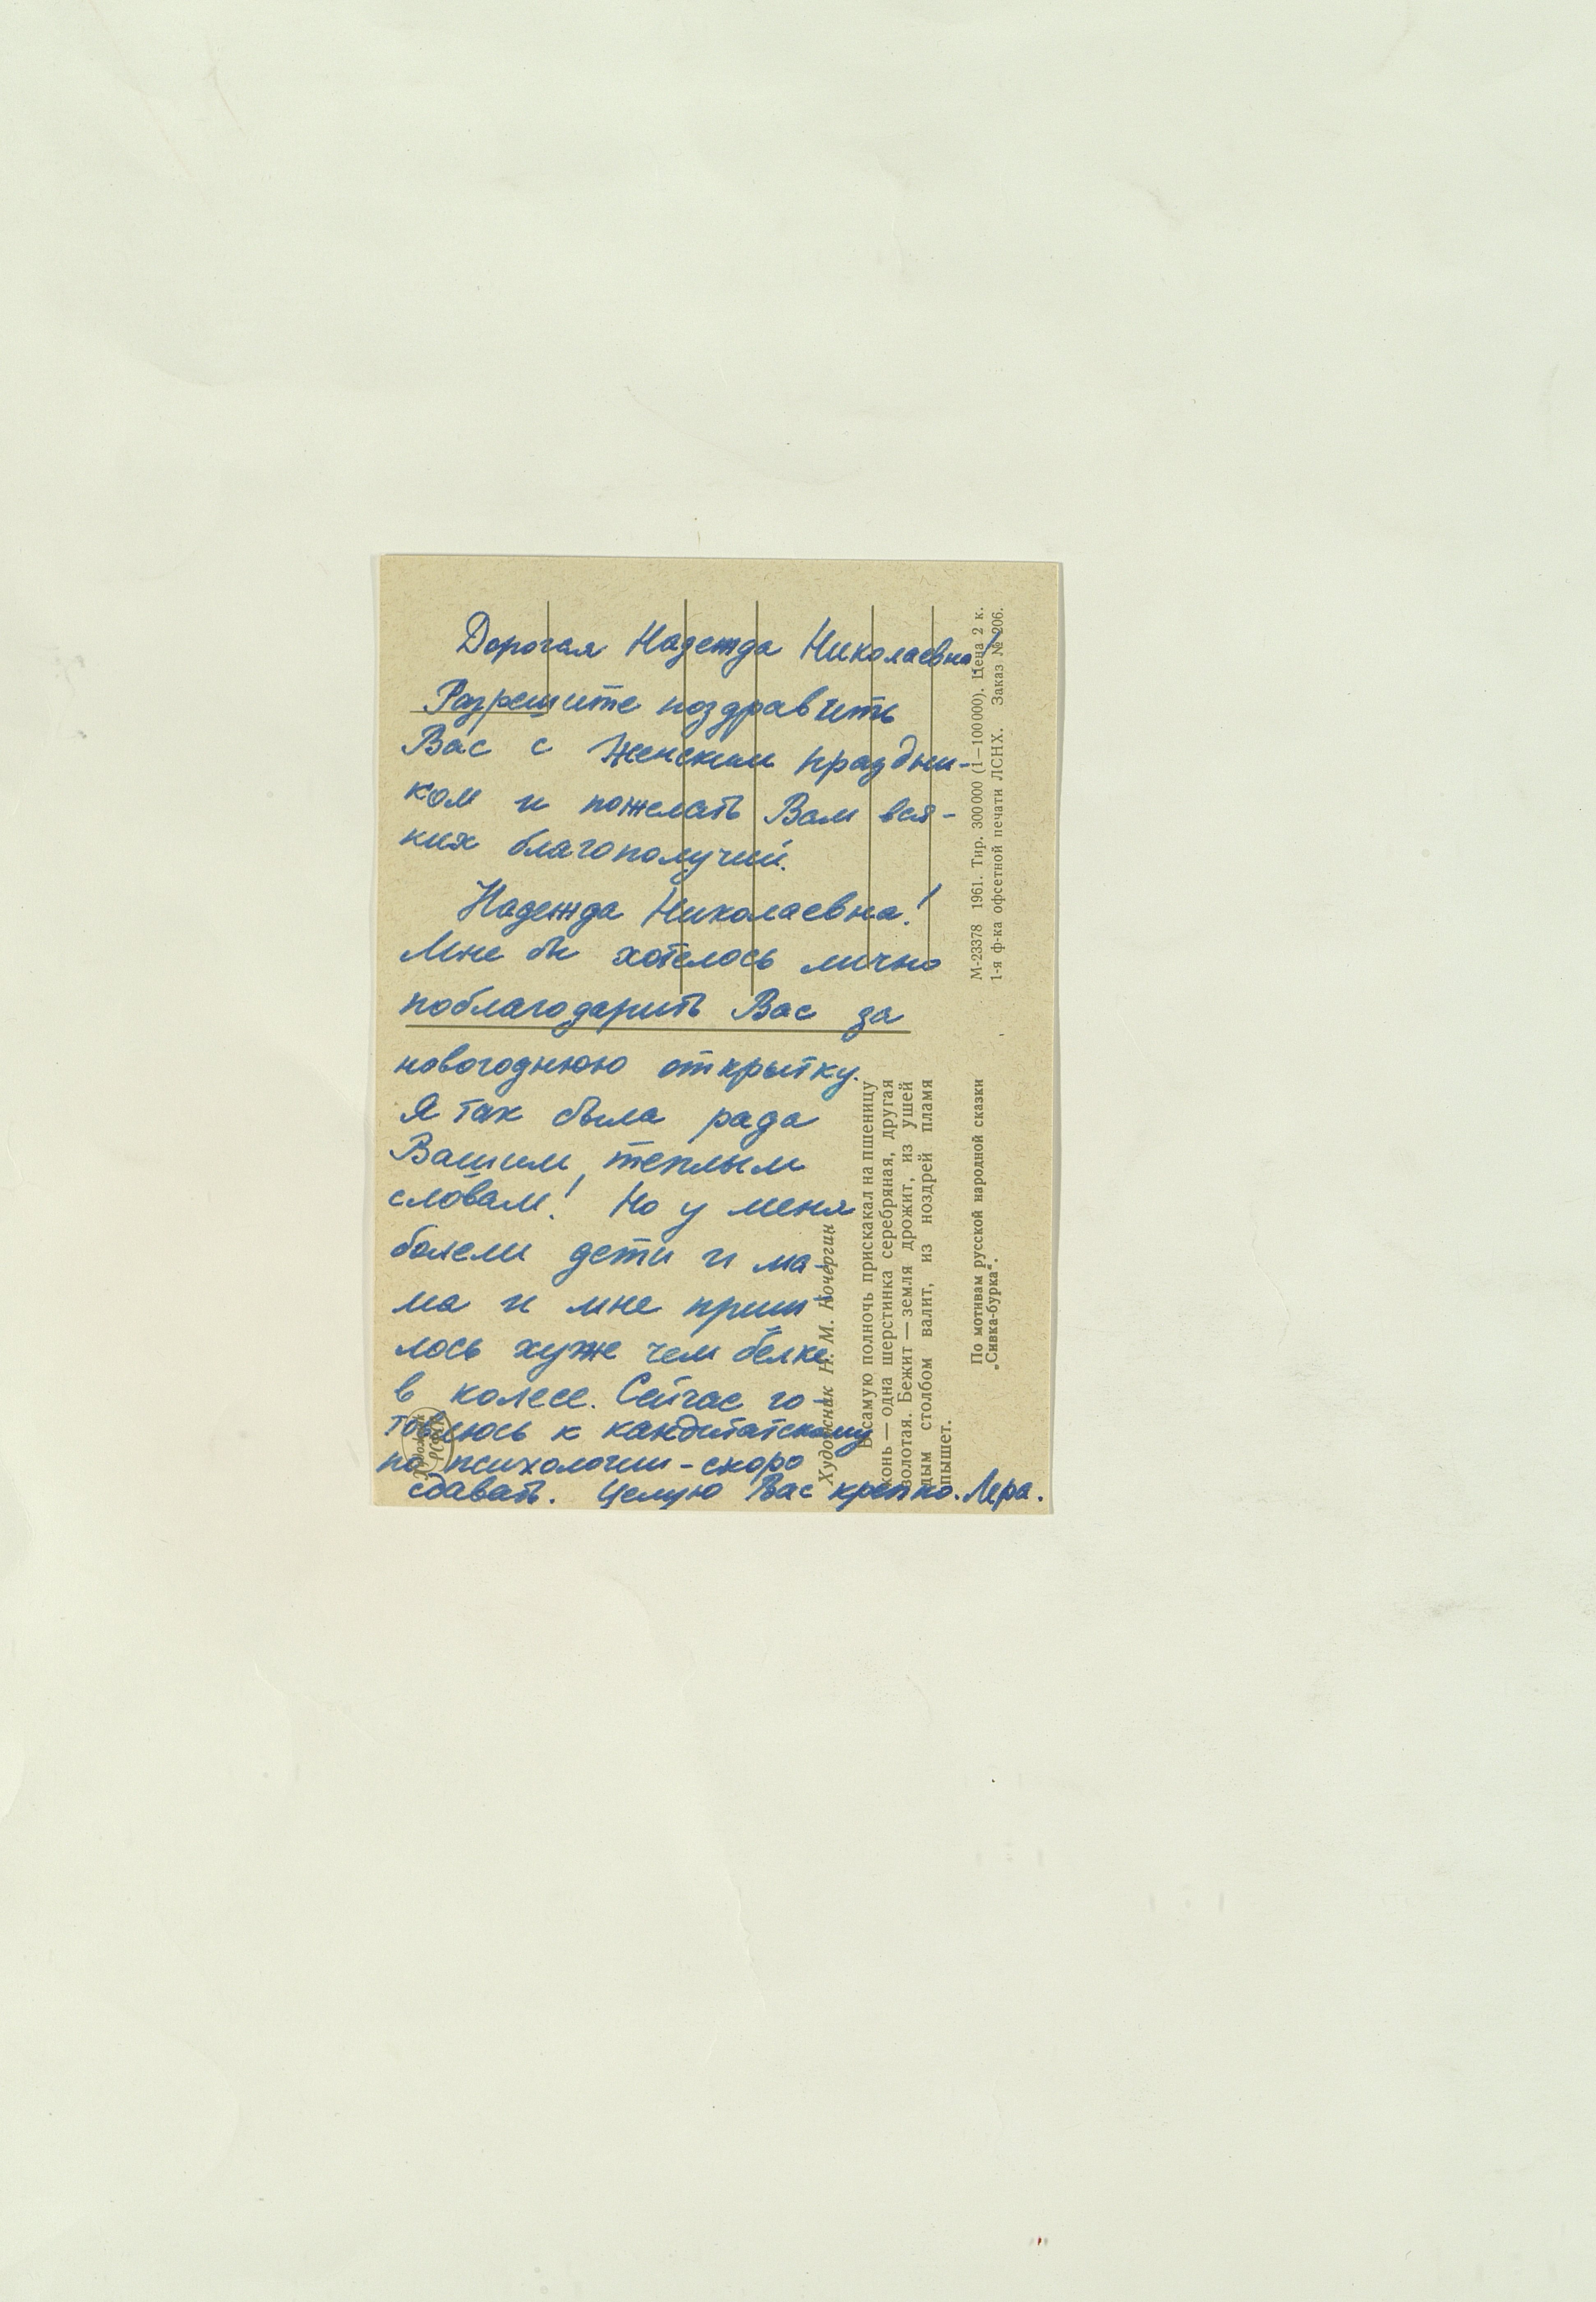 Дорогая Надежда Николаевна!
Разрешите поздравить
Вас с женским праздни-
ком и пожелать Вам вся-
ких благополучий.
Надежда Николаевна!
Мне бы хотелось лично
поблагодарить Вас за
новогоднюю открытку.
Я так была рада
Вашим теплым
словам! Но у меня
болели дети и ма-
ма и мне приш
лось хуже чем белке
в колесе. Сейчас го-
товлюсь к кандитатскому
по психологии - скоро
сдавать. Целую Вас крепко. Лера.
Художник
РСФСР
Художник Н. М. Кочергин
В самую полночь прискакал на пшеницу
конь — одна шерстинка серебряная, другая
золотая. Бежит — земля дрожит, из ушей
дым столбом валит, из ноздрей пламя
пышет.
По мотивам русской народной сказки
„Сивка-бурка“.
М-23378 1961. Тир. 300 000 (1—100 000). Цена 2 к.
1-я ф-ка офсетной печати ЛСНХ. Заказ № 206.